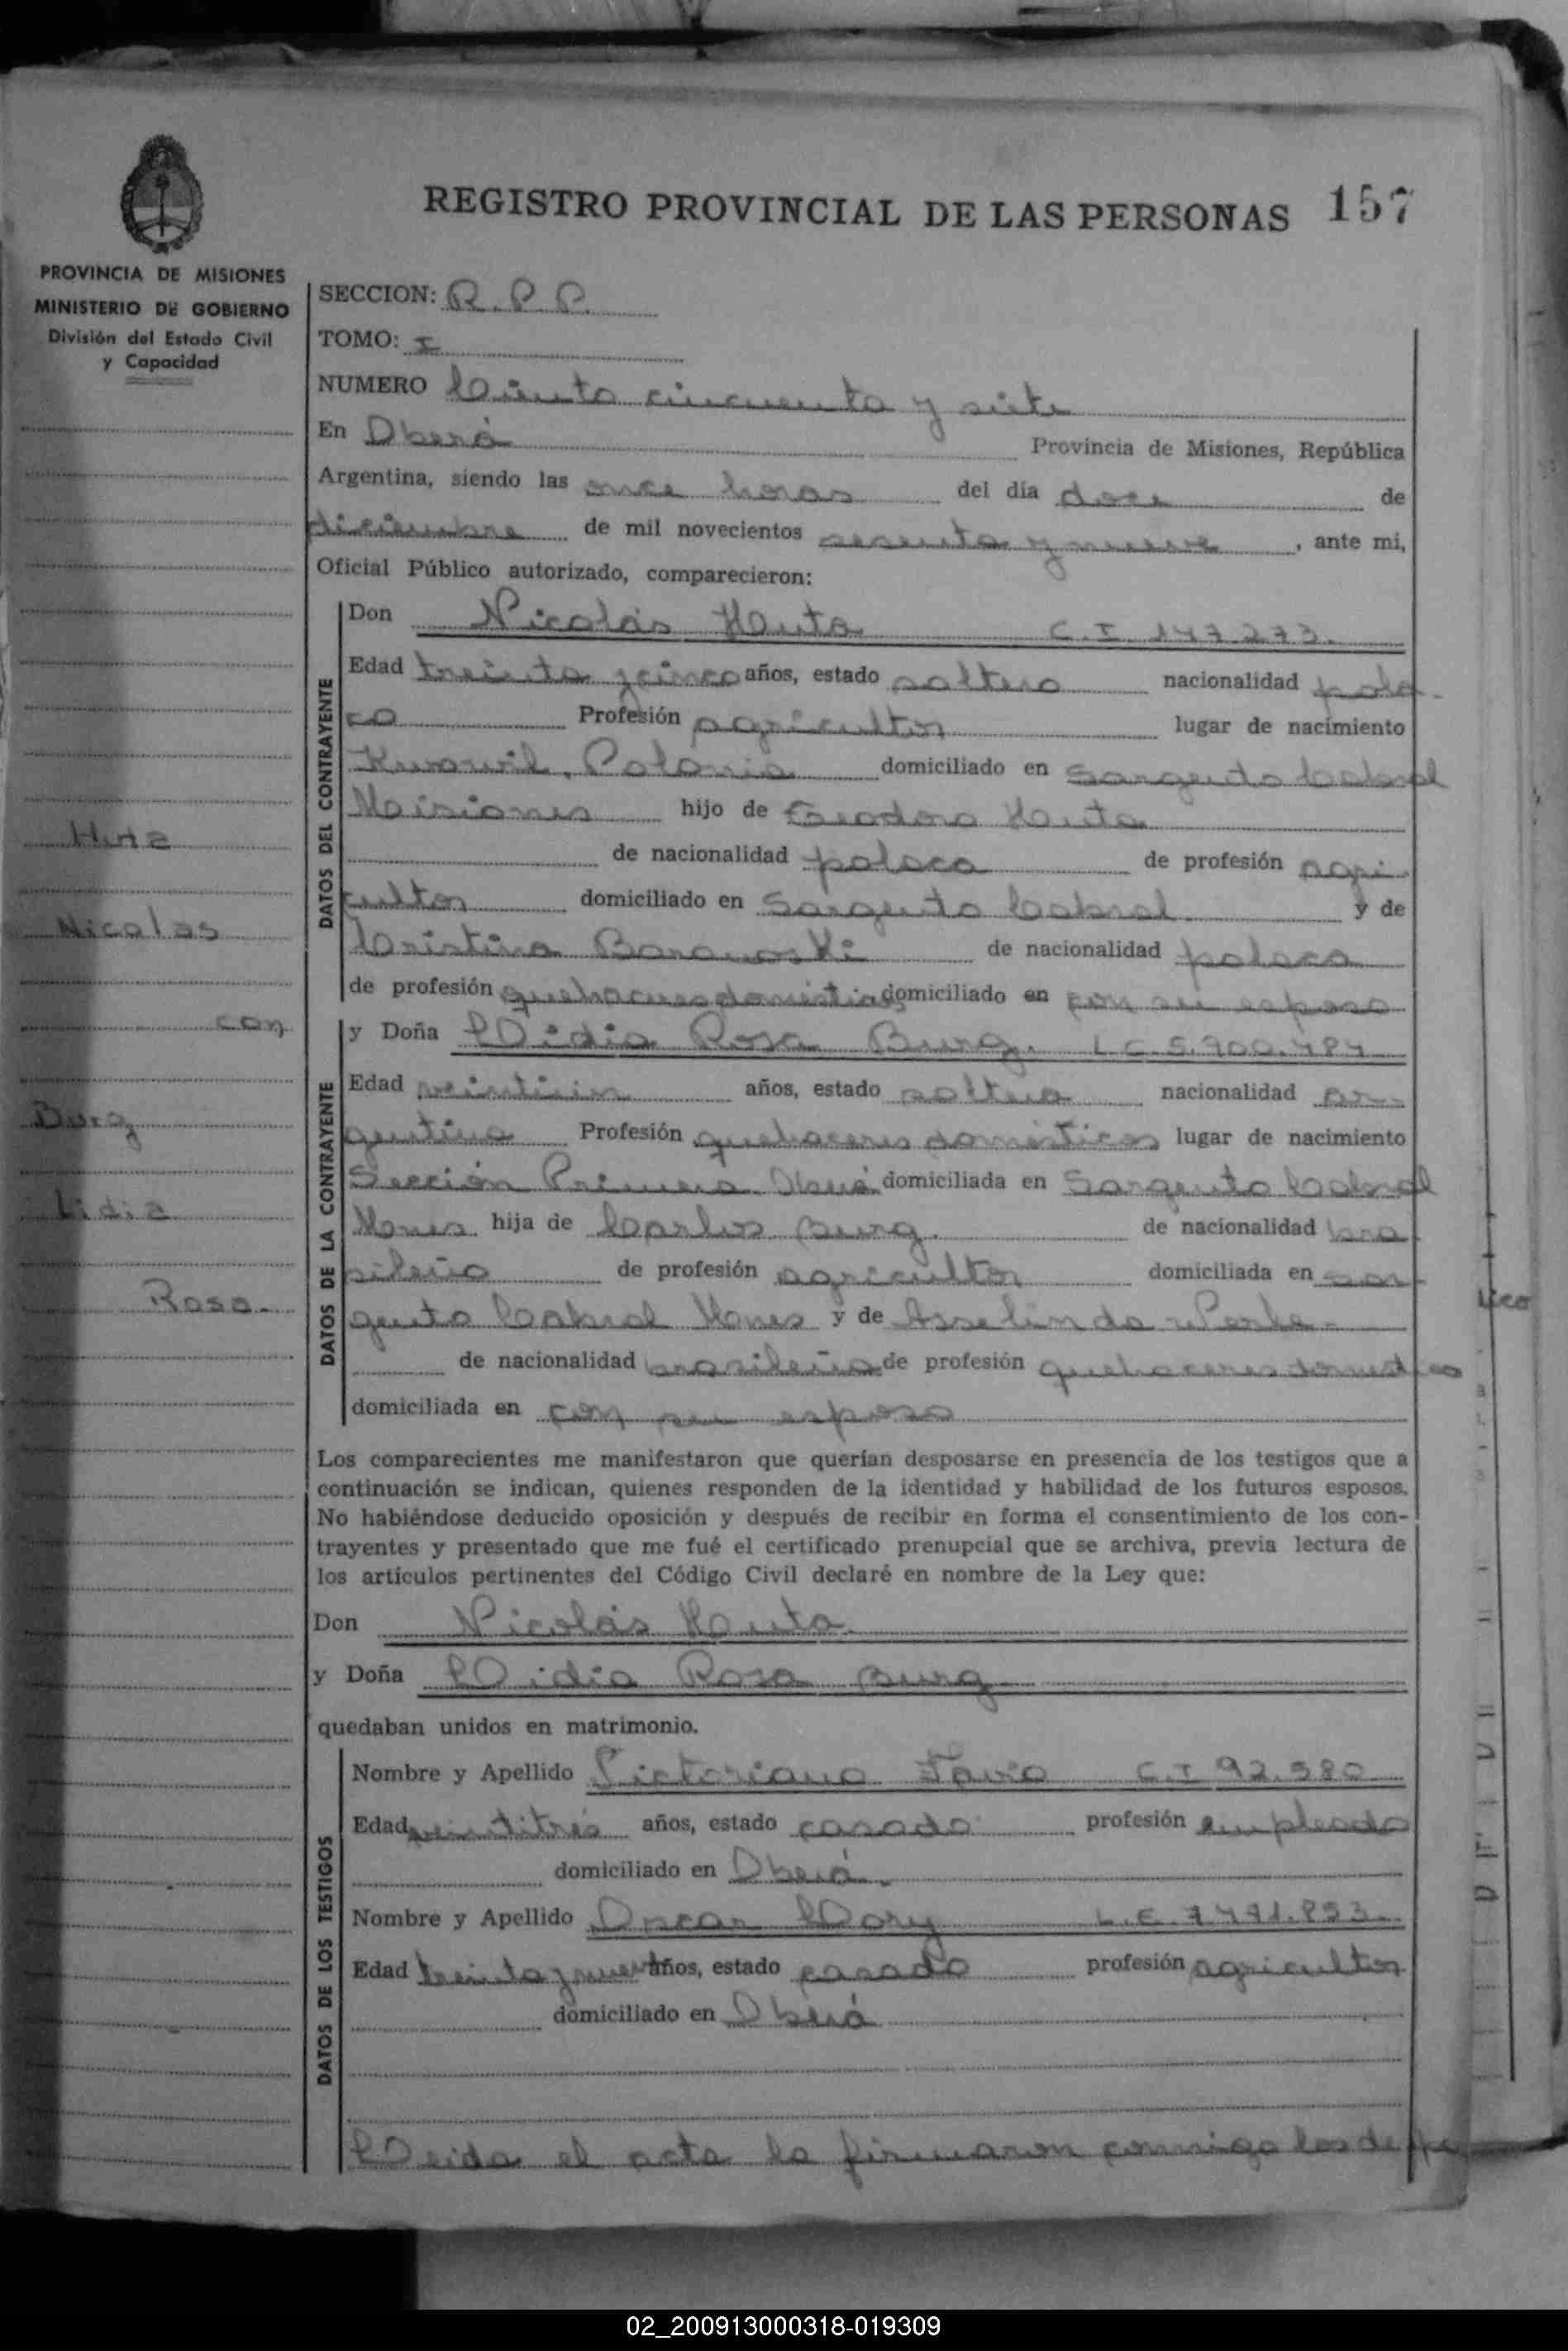 REGISTRO PROVINCIAL DE LAS PERSONAS 157
PROVINCIA DE MISIONES
MINISTERIO DE GOBIERNO
División del Estado Civil
y Capacidad
Huta
Nicolas
con
Burg
Lidia
Rosa.
SECCION: R.P.P.
TOMO: I
NUMERO Ciento cincuenta y siete
En Oberá Provincia de Misiones, República
Argentina, siendo las once horas del día doce de
diciembre de mil novecientos sesenta y nueve, ante mi,
Oficial Público autorizado, comparecieron:
DATOS DEL CONTRAYENTE
Don Nicolás Huta C.I. 147.273.
Edad treinta y cinco años, estado soltero nacionalidad pola-
co Profesión agricultor lugar de nacimiento
Polonia domiciliado en Sargento Cabral
Misiones hijo de Teodoro Huta
de nacionalidad polaca de profesión agri
cultor domiciliado en Sargento Cabral y de
Cristina Baranoski de nacionalidad polaca
de profesión quehaceres domésticos domiciliado en con su esposo
DATOS DE LA CONTRAYENTE
y Doña Lidia Rosa Burg. L.C. 5.900.484
Edad años, estado soltera nacionalidad ar-
gentina Profesión quehaceres domésticos lugar de nacimiento
Sección Primera Oberá domiciliada en Sargento Cabral
Mones hija de Carlos Burg. de nacionalidad bra
sileño de profesión agricultor domiciliada en sar-
gento Cabral Mones y de
de nacionalidad brasileña de profesión quehaceres domest cos
domiciliada en con su esposo
Los comparecientes me manifestaron que querían desposarse en presencia de los testigos que a
continuación se indican, quienes responden de la identidad y habilidad de los futuros esposos.
No habiéndose deducido oposición y después de recibir en forma el consentimiento de los con-
trayentes y presentado que me fué el certificado prenupcial que se archiva, previa lectura de
los artículos pertinentes del Código Civil declaré en nombre de la Ley que:
Don Nicolás Huta.
y Doña Lidia Rosa Burg
quedaban unidos en matrimonio.
DATOS DE LOS TESTIGOS
Nombre y Apellido Victoriano C.I 92.580
Edad veintitrés años, estado casado profesión empleado
domiciliado en Oberá.
Nombre y Apellido Oscar Lory L.E. 7.471.853.
Edad treinta y nueve años, estado casado profesión agricultor
domiciliado en Oberá
Leida el acta la firmaron conmigo los de
02_200913000318-019309